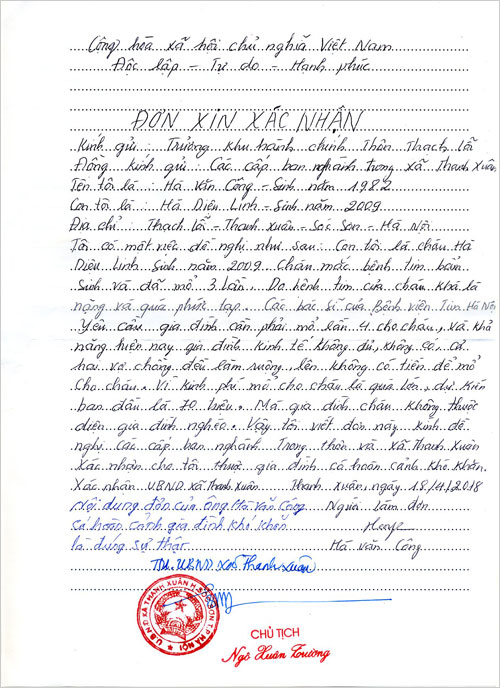 Công hòa xã hôi chủ nghĩa Việt Nam
Độc lập - Tự do - Hạnh phúc
ĐƠN XIN XÁC NHẬN
Kính gửi : Trưởng khu hành chính Thôn Thạch lỗi
Đồng kính gửi : Các cấp ban nghành trong xã Thanh Xuân
Tên tôi là : Hà Văn Công - Sinh năm 1982
Con tôi là : Hà Diệu Linh - Sinh năm 2009
Địa chỉ : Thạch lỗi - Thanh Xuân - Sóc Sơn - Hà Nội
Tôi có một việc đề nghị như sau : Con tôi là cháu Hà
Diệu Linh Sinh năm 2009. Cháu mắc bệnh tim bẩm
Sinh và đã mổ 3 lần. Do bệnh tim của cháu khá là
nặng và quá phức tạp. Các bác sĩ của Bệnh viện Tim Hà Nội
Yêu cầu gia đình cần phải mổ lần 4 cho cháu, và khả
năng hiện nay gia đình kinh tế không đủ, không có, cả
hai vợ chồng đều làm ruộng, lên không có tiền để mổ
cho cháu. Vì kinh phí mổ cho cháu là quá lớn, dự kiến
ban đầu là 70 triệu. Mà gia đình cháu không thuộc
diện gia đình nghèo. Vậy tôi viết đơn này kính đề
nghị các cấp ban nghành Trong thôn và xã Thanh Xuân
Xác nhận cho tôi thuộc gia đình có hoàn cảnh khó khăn.
Xác nhận U.B.N.D xã Thanh Xuân Thanh Xuân, ngày 18/4/2018
Nội dung đơn của Ông Hà Văn Công Người làm đơn
có hoàn cảnh gia đình khó khăn
là đúng sự thật Hà Văn Công
TM. U.B.N.D xã Thanh Xuân
U.B.N.D XÃ THANH XUÂN H. SÓC SƠN T.P HÀ NỘI
CHỦ TỊCH
Ngô Xuân Trường